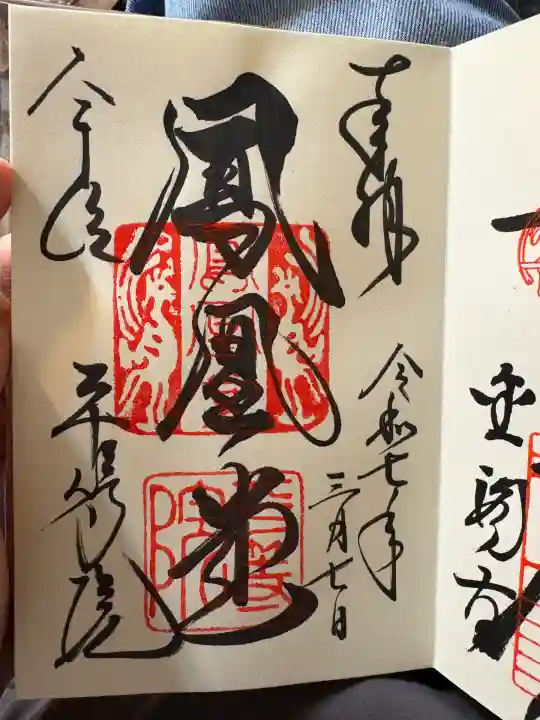 奉拝
令和七年
三月七日
鳳凰堂
平等院